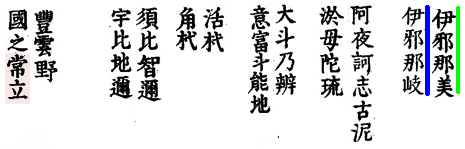 伊邪那美
伊邪那岐
阿夜訶志古泥
淤母陀琉
大斗乃辨
意富斗能地
活杙
角杙
須比智邇
宇比地邇
豐雲野
國之常立